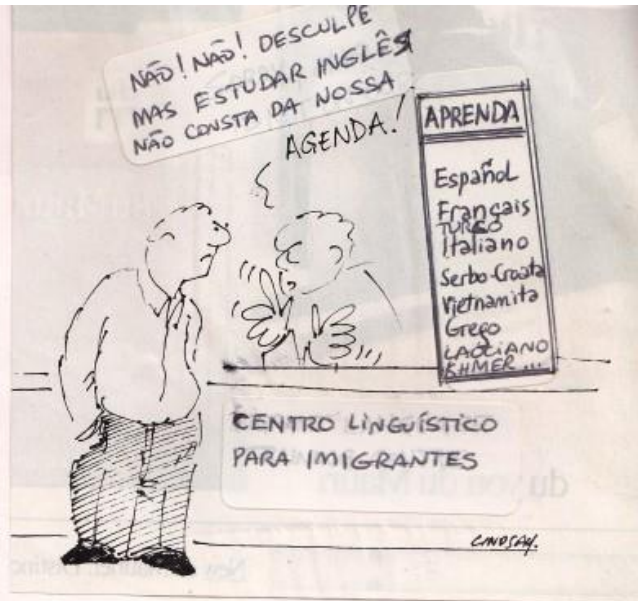 NÃO! NÃO! DESCULPE
MAS ESTUDAR INGLÊS
NÃO CONSTA DA NOSSA
AGENDA!
APRENDA
Español
Français
TURCO
Italiano
Serbo-Croata
Vietnamita
Grego
LAOCIANO
KHMER...
CENTRO LINGUÍSTICO
PARA IMIGRANTES